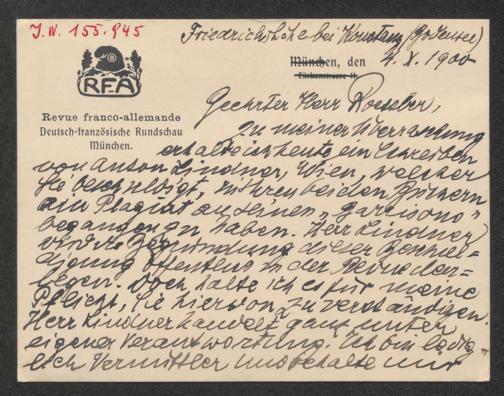 J.N. 155.945
Friedrichshöhe bei Konstanz (Bodensee)
München, den 4. X. 1900
Türkenstrasse 11.
RFA
Revue franco-allemande
Deutsch-französische Rundschau
München.
Geehrter Herr Roessler,
Zu meiner Überraschung
erhalte ich heute ein Schreiben
von Anton Lindner, Wien, welcher
Sie beschuldigt, mit Ihren beiden Büchern
ein Plagiat an seinen „Barrisons"
begangen zu haben. Herr Lindner
wird die Begründung dieser Beschul-
digung öffentlich in der Revue dar-
legen. Doch halte ich es für meine
Pflicht, Sie hiervon zu verständigen.
Herr Lindner handelt ganz unter
eigener Verantwortung. Ich bin ledig-
lich Vermittler und behalte mir